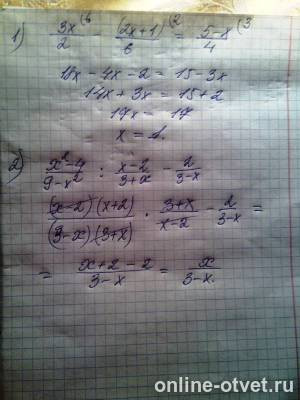 1) 3x/2 (6 - (2x+1)/6 (2 = 5-x/4 (3
18x - 4x - 2 = 15 - 3x
14x + 3x = 15 + 2
17x = 17
x = 1.
2) x²-4/9-x² : x-2/3+x - 2/3-x
(x-2)(x+2)/(3-x)(3+x) · 3+x/x-2 - 2/3-x =
= x+2-2/3-x = x/3-x.
online-otvet.ru